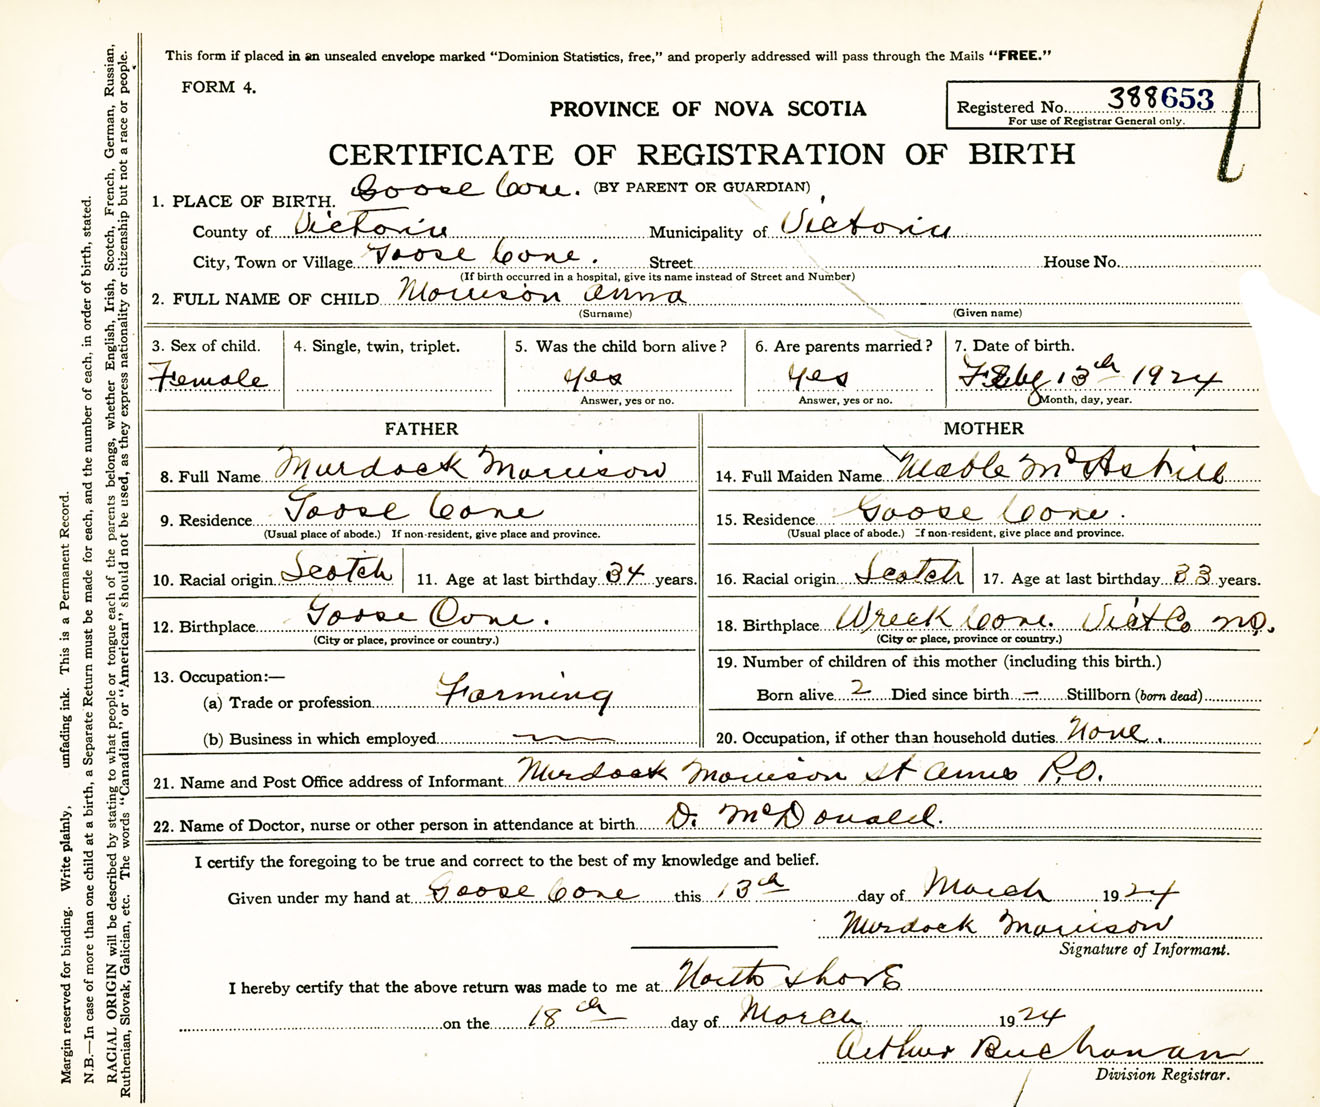 This form if placed in an unsealed envelope marked "Dominion Statistics, free," and properly addressed will pass through the Mails "FREE."
FORM 4.
PROVINCE OF NOVA SCOTIA
Registered No. 388653
For use of Registrar General only.
CERTIFICATE OF REGISTRATION OF BIRTH
(BY PARENT OR GUARDIAN)
1. PLACE OF BIRTH. Goose Cove.
County of Victoria Municipality of Victoria
City, Town or Village Goose Cove. Street House No.
(If birth occurred in a hospital, give its name instead of Street and Number)
2. FULL NAME OF CHILD Morrison Anna
(Surname) (Given name)
3. Sex of child. 4. Single, twin, triplet. 5. Was the child born alive? 6. Are parents married? 7. Date of birth.
Female yes yes Feby 13th 1924
Answer, yes or no. Answer, yes or no. Month, day, year.
FATHER MOTHER
8. Full Name Murdock Morrison 14. Full Maiden Name Mable McAskill
9. Residence Goose Cove 15. Residence Goose Cove.
(Usual place of abode.) If non-resident, give place and province. (Usual place of abode.) If non-resident, give place and province.
10. Racial origin Scotch 11. Age at last birthday 34 years. 16. Racial origin Scotch 17. Age at last birthday 33 years.
12. Birthplace Goose Cove. 18. Birthplace Wreck Cove. Vict Co N.S.
(City or place, province or country.) (City or place, province or country.)
13. Occupation:— 19. Number of children of this mother (including this birth.)
(a) Trade or profession Farming Born alive 2 Died since birth — Stillborn (born dead)
(b) Business in which employed 20. Occupation, if other than household duties None.
21. Name and Post Office address of Informant Murdock Morrison St Anns P.O.
22. Name of Doctor, nurse or other person in attendance at birth D. McDonald.
I certify the foregoing to be true and correct to the best of my knowledge and belief.
Given under my hand at Goose Cove this 13th day of March 1924
Murdock Morrison
Signature of Informant.
I hereby certify that the above return was made to me at North Shore
on the 18th day of March 1924
Arthur Buchanan
Division Registrar.
Margin reserved for binding. Write plainly, unfading ink. This is a Permanent Record.
N.B.—In case of more than one child at a birth, a Separate Return must be made for each, and the number of each, in order of birth, stated.
RACIAL ORIGIN will be described by stating to what people or tongue each of the parents belongs, whether English, Irish, Scotch, French, German, Russian,
Ruthenian, Slovak, Galician, etc. The words "Canadian" or "American" should not be used, as they express nationality or citizenship but not a race or people.